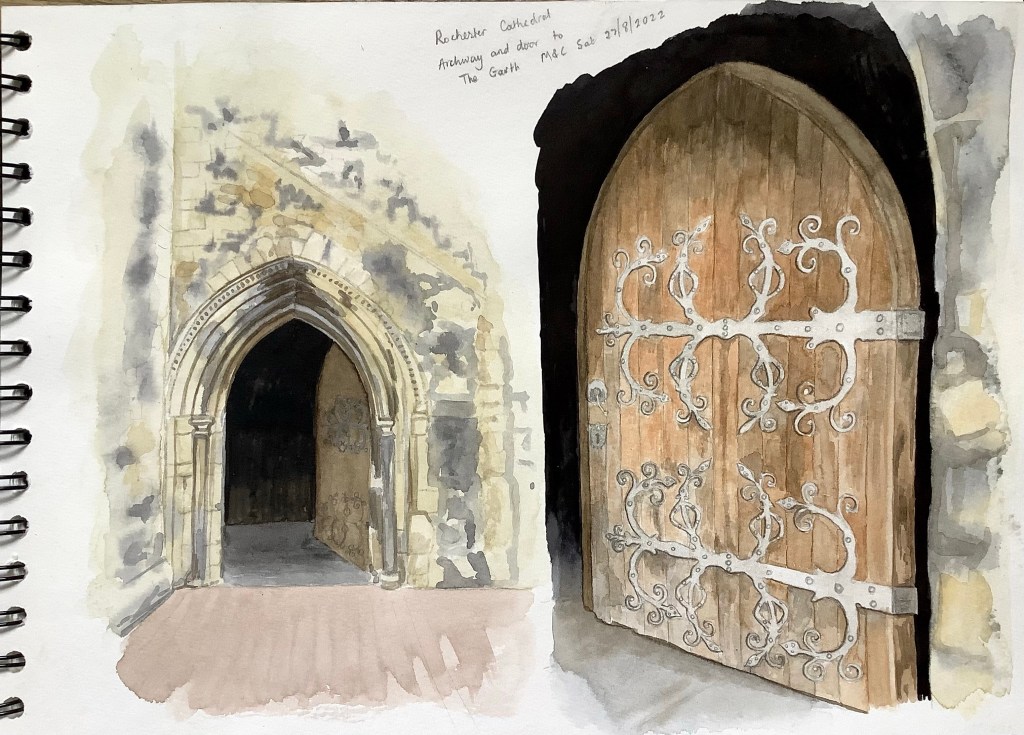 Rochester Cathedral
Archway and door to
The Garth M&C Sat 27/8/2022